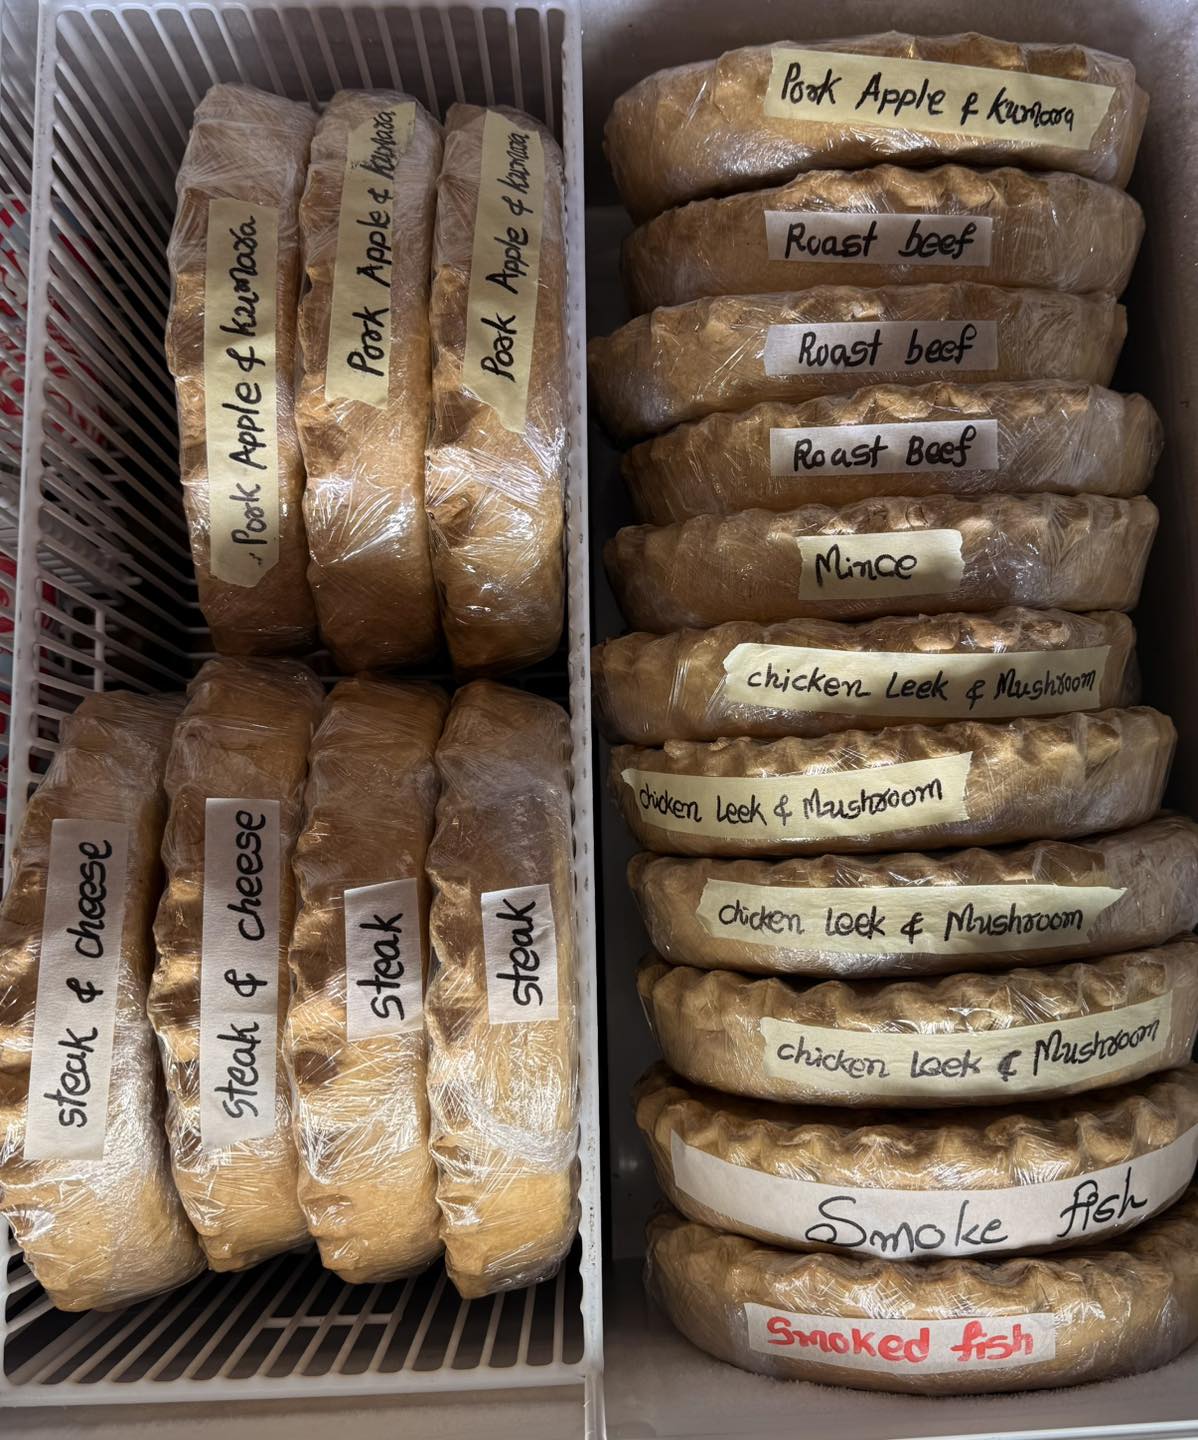 Pork Apple & kumara
Pork Apple & kumara
Pork Apple & kumara
steak & cheese
steak & cheese
steak
steak
Pork Apple & kumara
Roast beef
Roast beef
Roast Beef
Mince
chicken Leek & Mushroom
chicken Leek & Mushroom
chicken Leek & Mushroom
chicken Leek & Mushroom
Smoke fish
Smoked fish